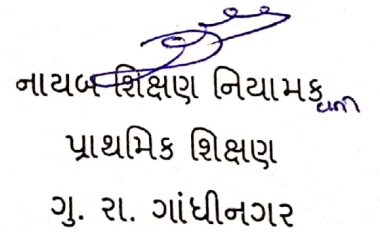 નાયબ શિક્ષણ નિયામક વતી
પ્રાથમિક શિક્ષણ
ગુ. રા. ગાંધીનગર